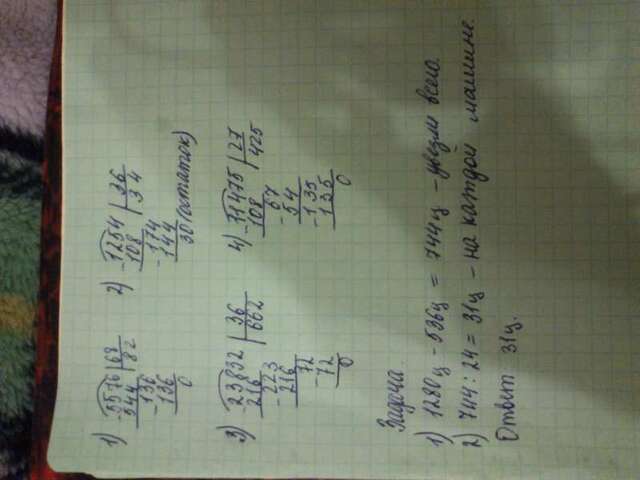 1) -5576 | 68
544 | 82
-136
136
0
2) -1254 | 36
108 | 34
-174
144
30 (остаток)
3) -23832 | 36
216 | 662
-223
216
-72
72
0
4) -11475 | 27
108 | 425
-67
54
-135
135
0
Задача.
1) 1280ц - 536ц = 744ц - увезли всего.
2) 744 : 24 = 31ц - на каждой машине.
Ответ 31ц.